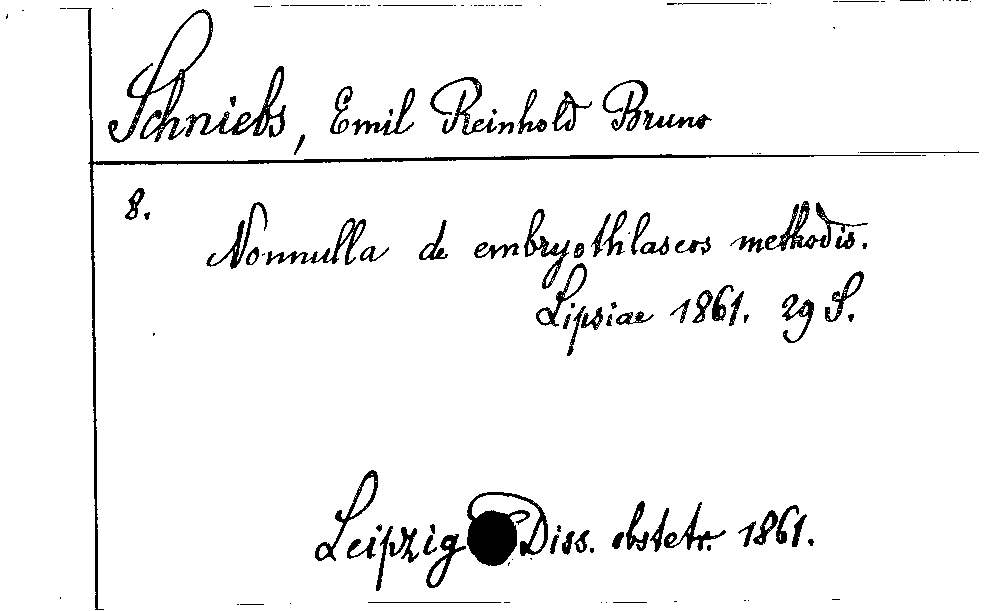 Schniebs, Emil Reinhold Bruno
8.
Nonnulla de embryothlaseos methodis.
Lipsiae 1861. 29 S.
Leipzig Diss. obstetr. 1861.